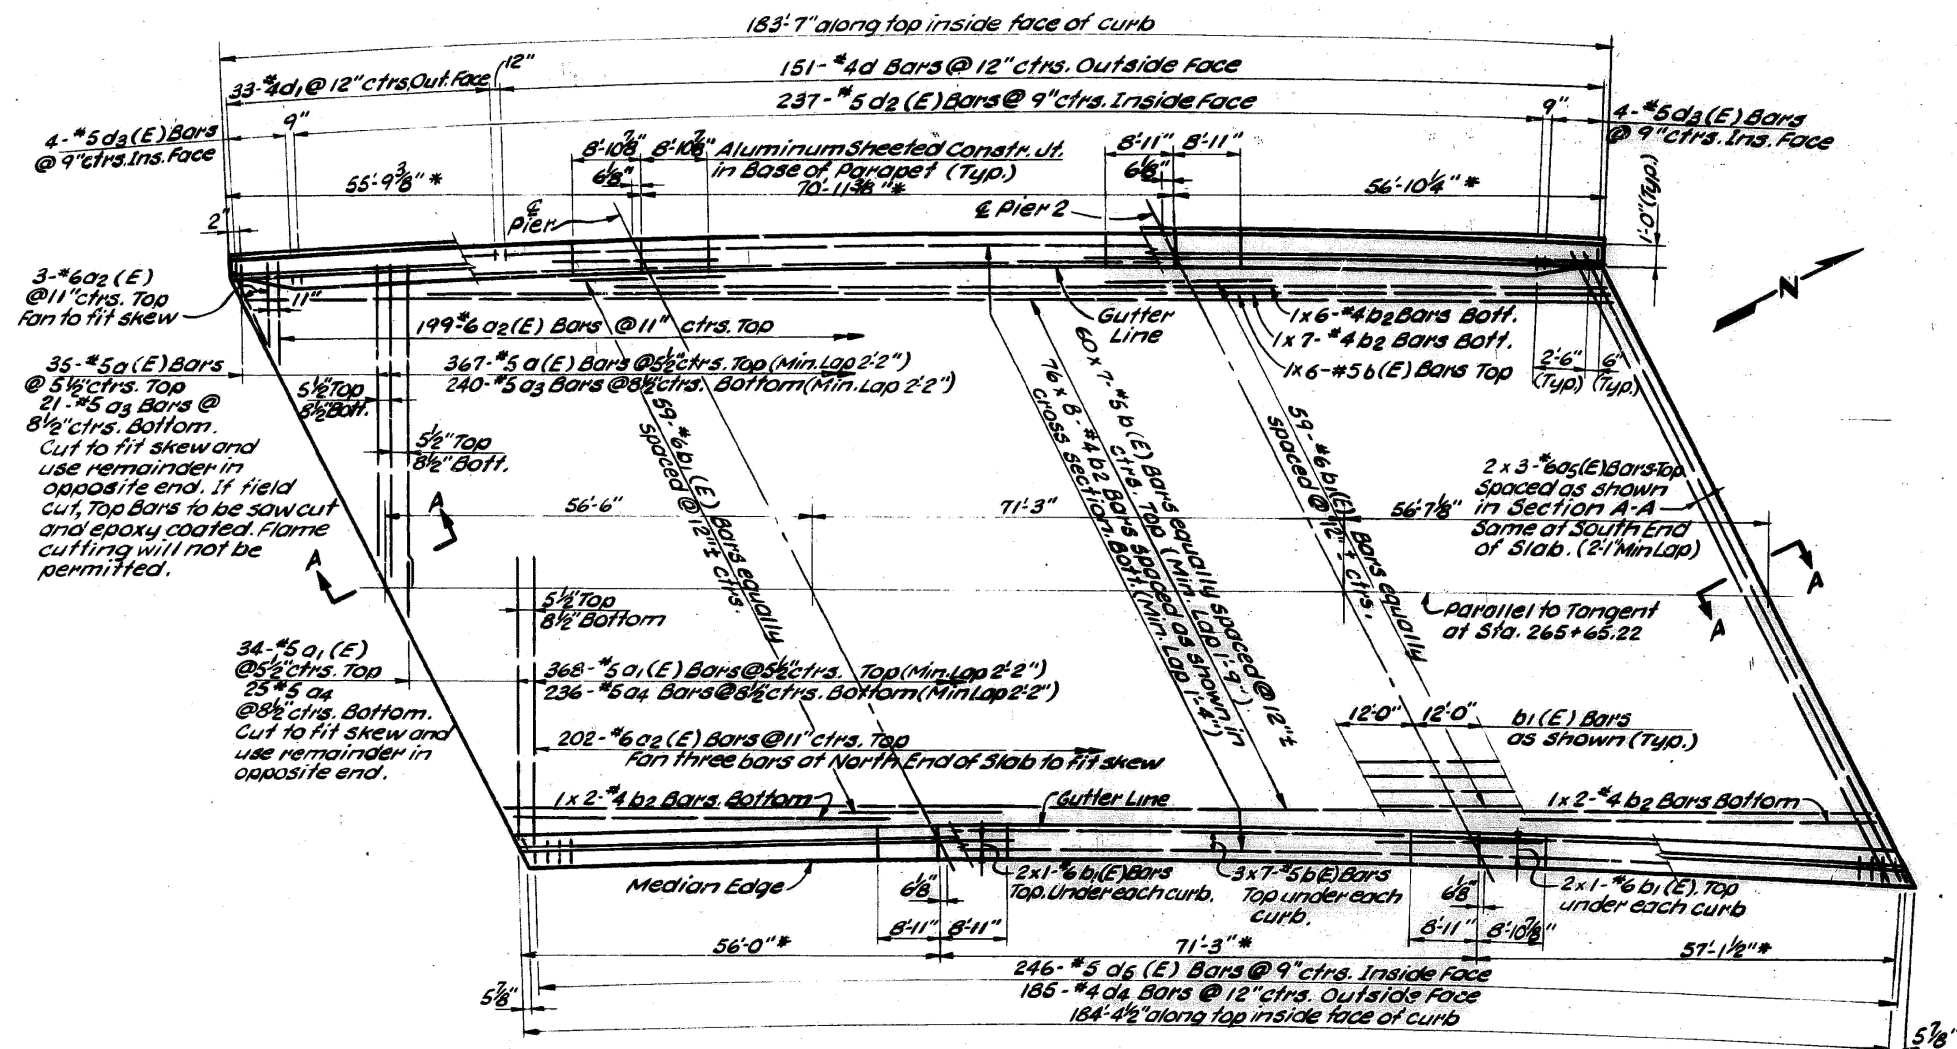 183'-7" along top inside face of curb
33-#4d1 @ 12" ctrs. Out. Face
12"
151-#4d Bars @ 12" ctrs. Outside Face
237-#5 d2 (E) Bars @ 9" ctrs. Inside Face
4-#5 d3 (E) Bars
@ 9" ctrs. Ins. Face
9"
9"
4-#5 d3 (E) Bars
@ 9" ctrs. Ins. Face
8'-10 7/8"
8'-10 7/8"
Aluminum Sheeted Constr. Jt.
in Base of Parapet (Typ.)
8'-11"
8'-11"
6 1/8"
6 1/8"
55'-9 3/8" *
70'-11 3/8" *
56'-10 1/4" *
1'-0" (Typ.)
2"
℄
Pier
℄ Pier 2
N
3-#6a2 (E)
@ 11" ctrs. Top
Fan to fit skew
11"
199-#6 a2(E) Bars @ 11" ctrs. Top
Gutter
Line
1x6-#4 b2 Bars Bott.
1x7-#4 b2 Bars Bott.
1x6-#5 b(E) Bars Top
2'-6"
(Typ.)
6"
(Typ.)
35-#5a (E) Bars
@ 5 1/2" ctrs. Top
21-#5 a3 Bars @
8 1/2" ctrs. Bottom.
Cut to fit skew and
use remainder in
opposite end. If field
cut, Top Bars to be saw cut
and epoxy coated. Flame
cutting will not be
permitted.
367-#5 a (E) Bars @ 5 1/2" ctrs. Top (Min. Lap 2'-2")
240-#5 a3 Bars @ 8 1/2" ctrs. Bottom (Min. Lap 2'-2")
5 1/2" Top
8 1/2" Bott.
5 1/2" Top
8 1/2" Bott.
59-#6 b1 (E) Bars equally
spaced @ 12"± ctrs.
60 x 7-#5 b (E) Bars equally spaced @ 12"±
ctrs. Top (Min. Lap 1'-9")
76 x 8-#4 b2 Bars spaced as shown in
cross section. Bott. (Min. Lap 1'-4")
59-#6 b1(E) Bars equally
spaced @ 12"± ctrs.
2 x 3-#6a5(E) Bars-Top
Spaced as shown
in Section A-A
Same at South End
of Slab. (2'-1" Min Lap)
56'-6"
71'-3"
56'-7 1/8"
A
A
A
A
Parallel to Tangent
at Sta. 265+65.22
5 1/2" Top
8 1/2" Bottom
34-#5 a1 (E)
@ 5 1/2" ctrs. Top
25 #5 a4
@ 8 1/2" ctrs. Bottom.
Cut to fit skew and
use remainder in
opposite end.
368-#5 a1 (E) Bars @ 5 1/2" ctrs. Top (Min. Lap 2'-2")
236-#5 a4 Bars @ 8 1/2" ctrs. Bottom (Min Lap 2'-2")
202-#6 a2 (E) Bars @ 11" ctrs. Top
Fan three bars at North End of Slab to fit skew
12'-0"
12'-0"
b1 (E) Bars
as shown (Typ.)
1 x 2-#4 b2 Bars. Bottom
Gutter Line
1 x 2-#4 b2 Bars Bottom
Median Edge
2x1-#6 b1(E) Bars
Top. Under each curb.
3x7-#5b(E) Bars
Top under each
curb.
2x1-#6 b1 (E). Top
under each curb
6 1/8"
6 1/8"
8'-11"
8'-11"
8'-11"
8'-10 7/8"
56'-0" *
71'-3" *
57'-1 1/2" *
246-#5 d5 (E) Bars @ 9" ctrs. Inside Face
185-#4 d4 Bars @ 12" ctrs. Outside Face
184'-4 1/2" along top inside face of curb
5 7/8"
5 7/8"